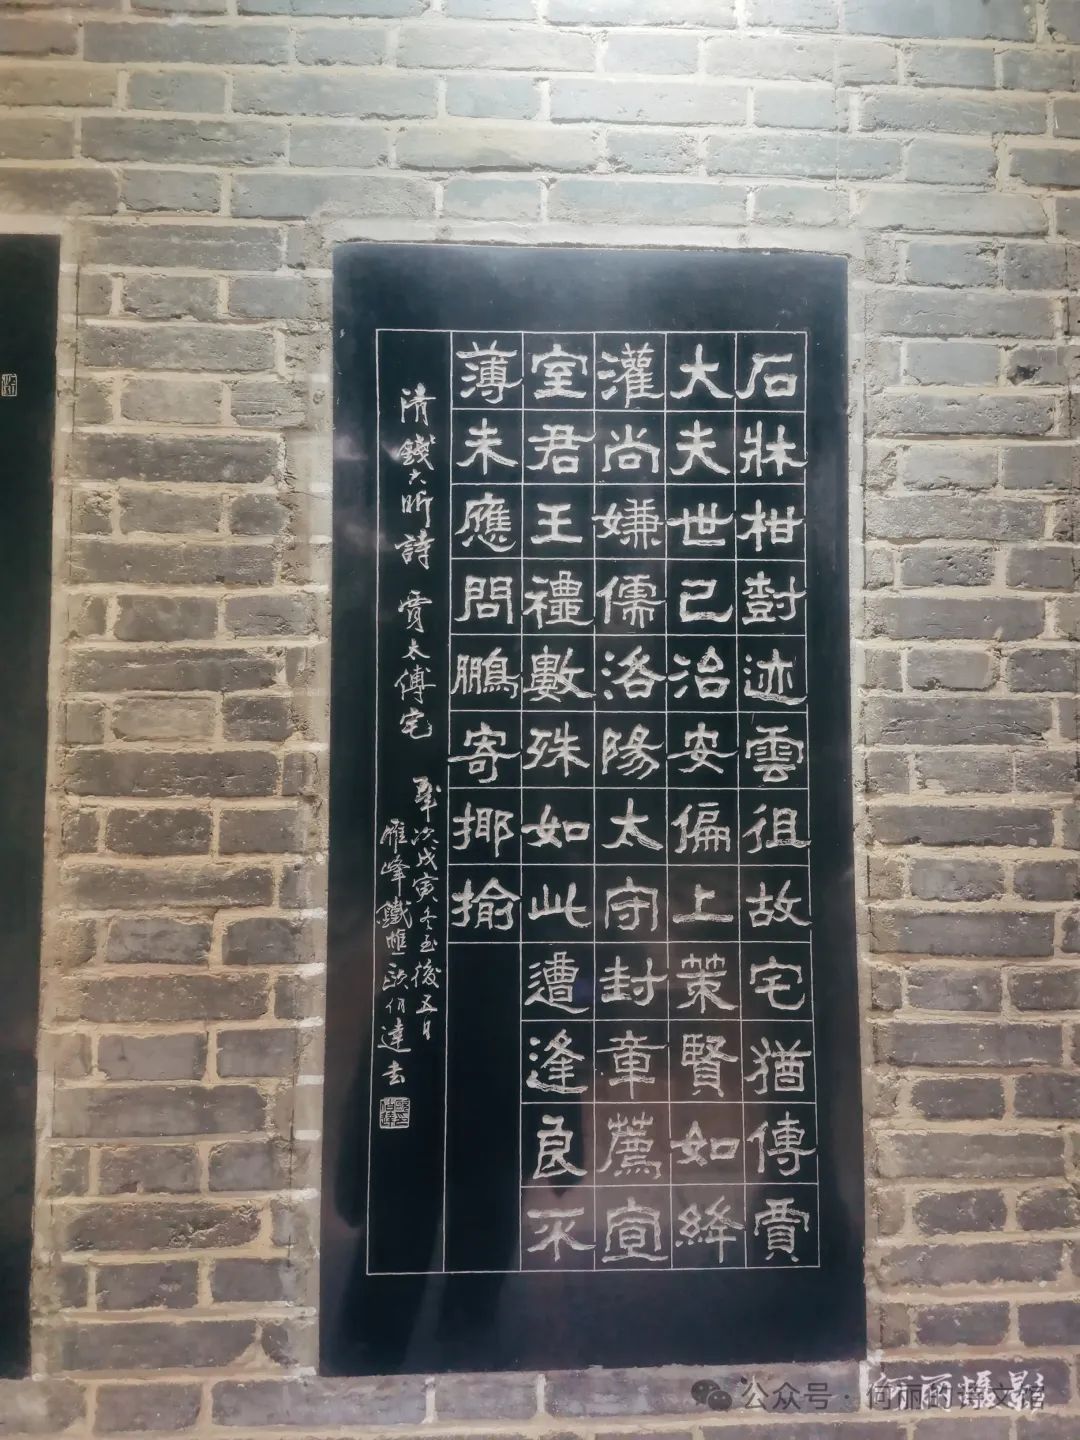 石牀柑尌迹雲徂故宅猶傳賈
大夫世已治安偏上策賢如絳
灌尚嫌儒洛陽太守封章薦宣
室君王禮數殊如此遭逢良不
薄未應問鵬寄揶揄
清錢大昕詩 賈太傅宅 歲次戊寅冬至後五日
雁峰鐵樵歐伯達書
公众号·何丽的诗文馆
何丽摄影